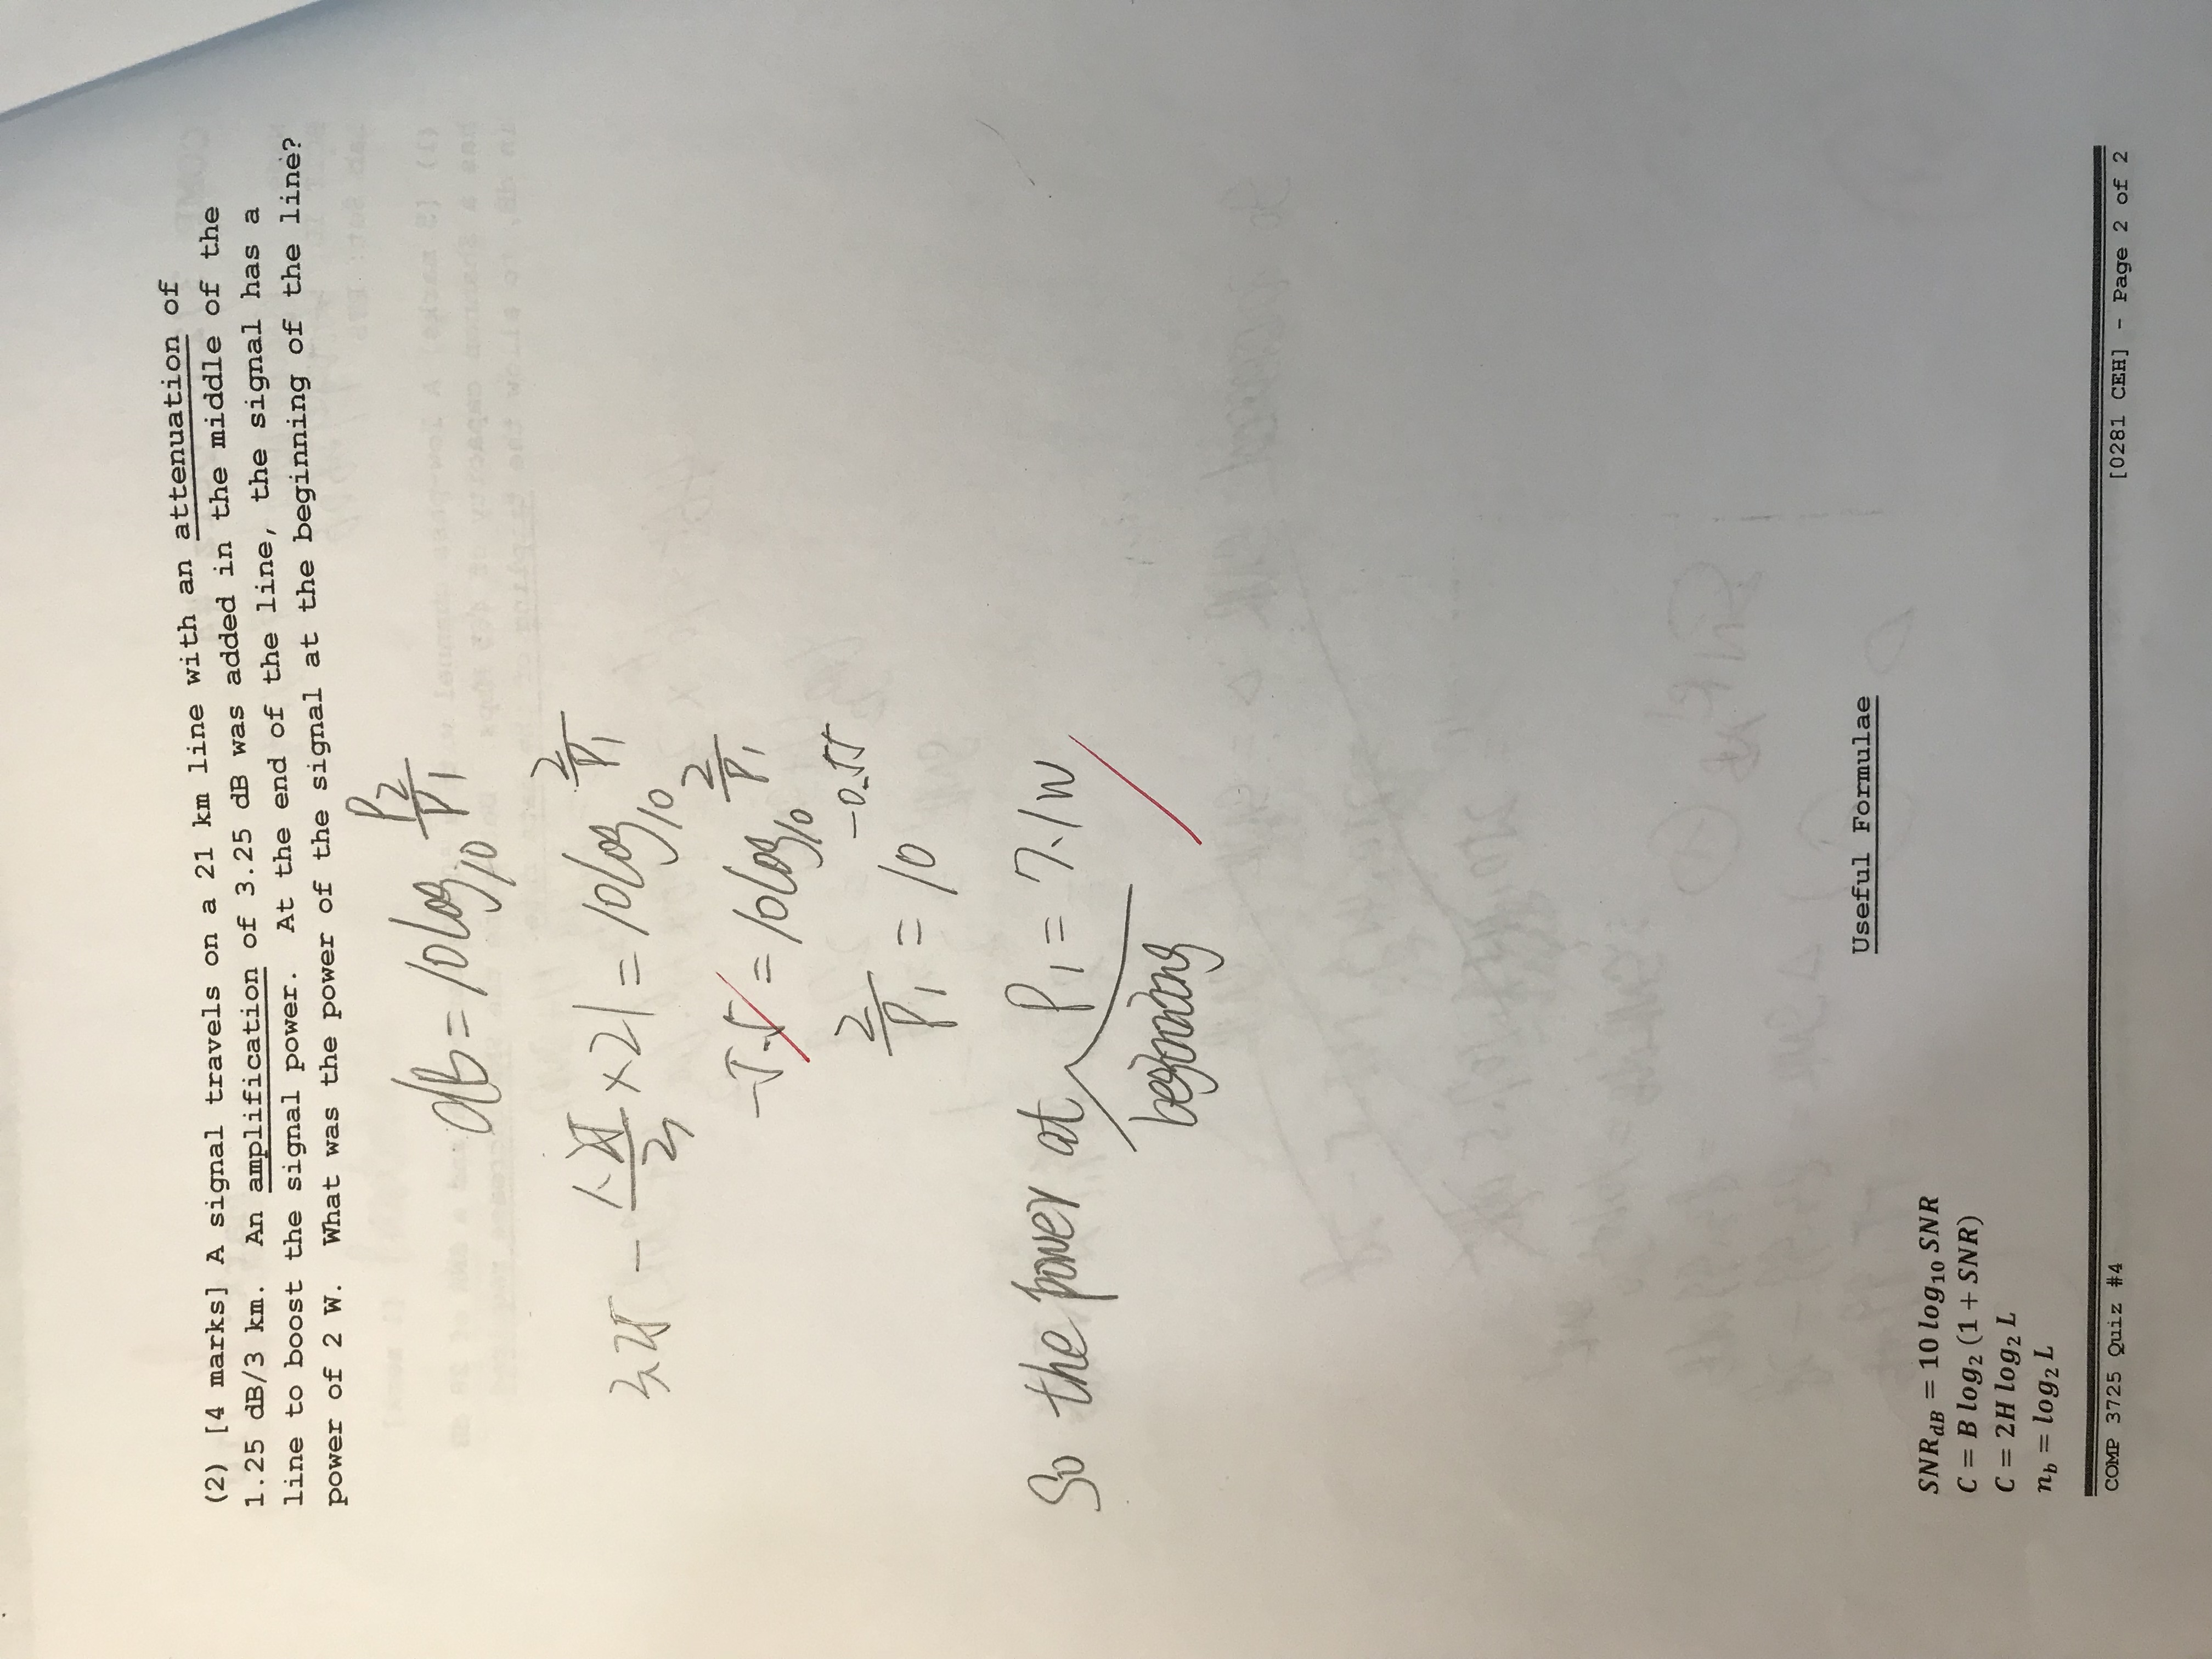 (2) [4 marks] A signal travels on a 21 km line with an attenuation of
1.25 dB/3 km. An amplification of 3.25 dB was added in the middle of the
line to boost the signal power. At the end of the line, the signal has a
power of 2 W. What was the power of the signal at the beginning of the line?
dB = 10 log₁₀ P₂/P₁
3.25 - 1.25/3 × 21 = 10 log₁₀ 2/P₁
-5.5 = 10 log₁₀ 2/P₁
2/P₁ = 10^-0.55
So the power at P₁ = 7.1 W
beginning
Useful Formulae
SNR_dB = 10 log₁₀ SNR
C = B log₂ (1 + SNR)
C = 2H log₂ L
n_b = log₂ L
COMP 3725 Quiz #4 [0281 CEH] - Page 2 of 2